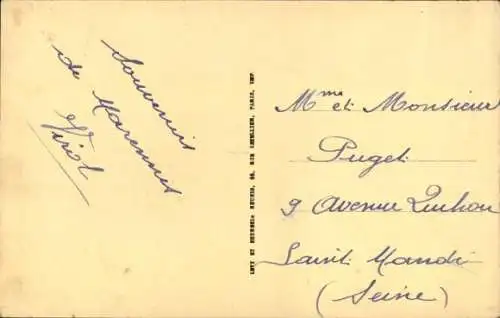 Souvenir
de Marennes
Virol
LEVY ET NEURDEIN REUNIS, 44, RUE LETELLIER, PARIS, IMP
Mme et Monsieur
Puget
9 Avenue Quihou
Saint Mandé
(Seine)